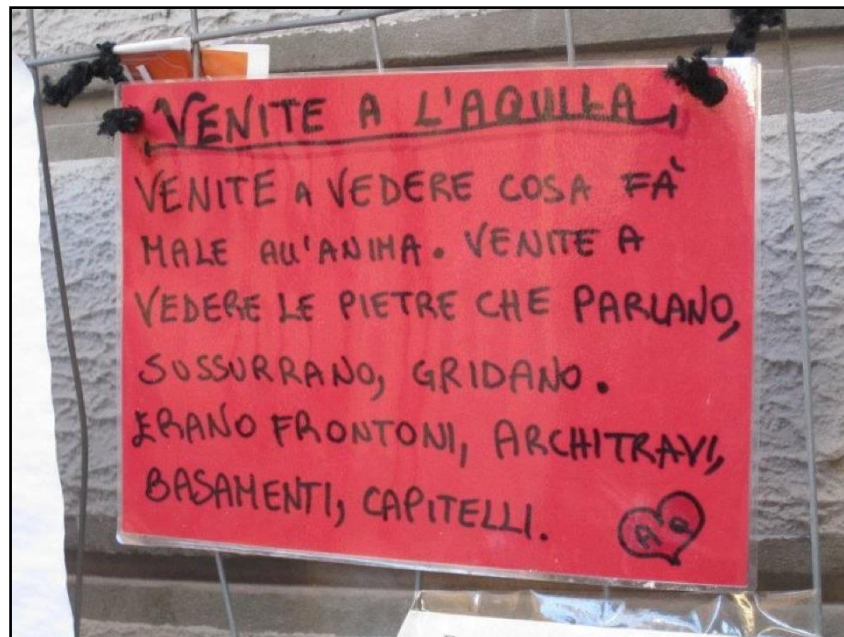 VENITE A L'AQUILA
VENITE A VEDERE COSA FÀ
MALE ALL'ANIMA. VENITE A
VEDERE LE PIETRE CHE PARLANO,
SUSSURRANO, GRIDANO.
ERANO FRONTONI, ARCHITRAVI,
BASAMENTI, CAPITELLI.
AQ